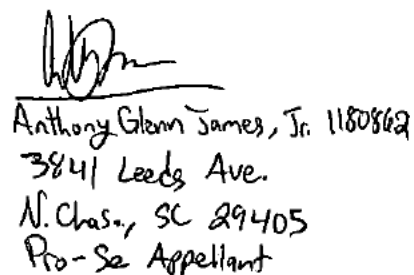 Anthony Glenn James, Jr. 1180862
3841 Leeds Ave.
N. Chas., SC 29405
Pro-Se Appellant